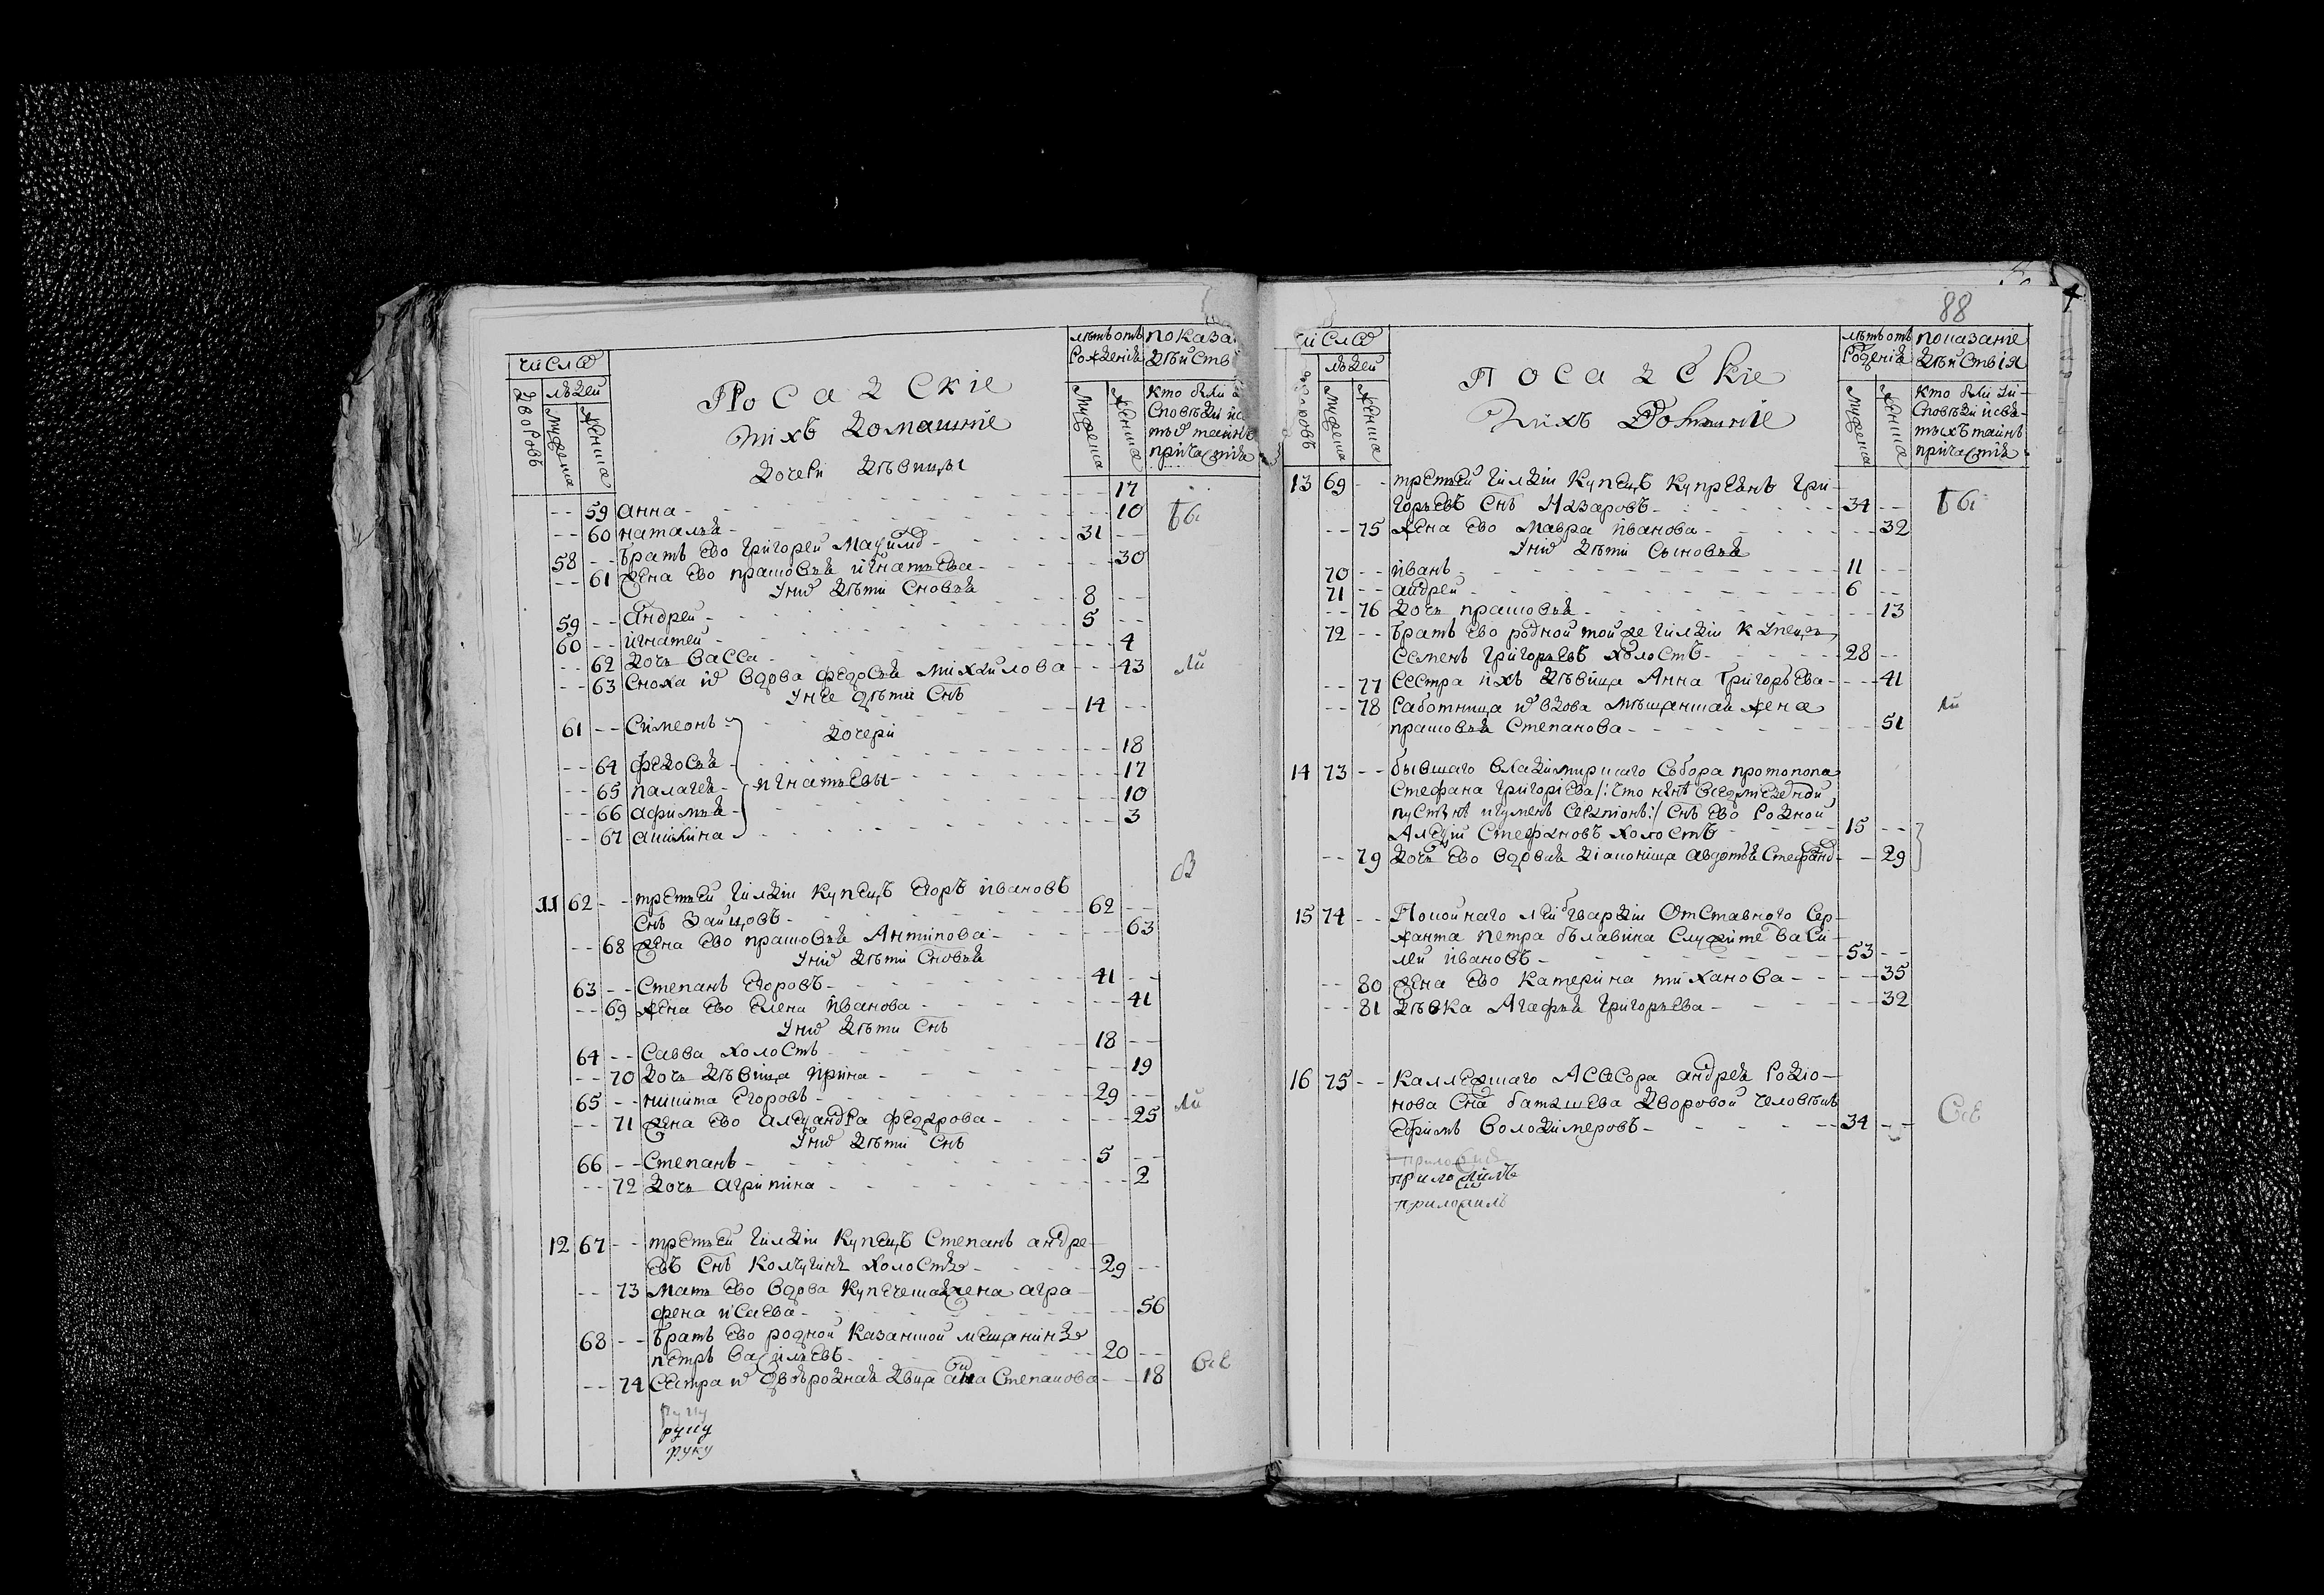 число
дворовъ
людей
мужеска
женска
Посадскіе
и ихъ домашніе
лѣтъ отъ рожденія
мужеска
женска
показа
дѣйств
кто были
исповѣди и с
тыхъ таинъ
причастія
дочери дѣвицы
59 Анна 17
60 Наталья 10
58 братъ ево Григорей 31
61 жена ево Прасковья Игнатьева 30
у нихъ дѣти сновья
59 Андрей 8
60 Игнатей 5
62 дочь Васса 4
63 сноха их вдова Федосья Михайлова 43
у нее дѣти снъ
61 Симеонъ 14
дочери
64 Федосья 18
65 Палагея 17
Игнатьевы
66 Афимья 10
67 Акилина 3
11 62 третьей гилдіи купецъ Егоръ Ивановъ
снъ Зайцовъ 62
68 жена ево Прасковья Антипова 63
у нихъ дѣти сновья
63 Степанъ Егоровъ 41
69 жена ево Елена Иванова 41
у нихъ дѣти снъ
64 Савва холостъ 18
70 дочь дѣвица Ирина 19
65 Никита Егоровъ 29
71 жена ево Александра Федорова 25
у нихъ дѣти снъ
66 Степанъ 5
72 дочь Агрипина 2
12 67 третьей гилдіи купецъ Степанъ Андре
евъ снъ Колчугинъ холостъ 29
73 мать ево вдова купеческая жена Агра
фена Исаева 56
68 братъ ево родной казанской мещанинъ
Петръ Васильевъ 20
74 сестра их двоюродная двица Анна Степанова 18
руку
руку
руку
88
число
дворовъ
людей
мужеска
женска
Посадскіе
и ихъ домашніе
лѣтъ отъ роженія
мужеска
женска
показаніе
дѣйствія
кто были у и
сповѣди и свя
тыхъ таинъ
причастія
13 69 третьей гилдіи купецъ Купреянъ Гри
горьевъ снъ Назаровъ 34
75 жена ево Мавра Иванова 32
у нихъ дѣти сыновья
70 Иванъ 11
71 Андрей 6
76 дочь Прасковья 13
72 братъ ево родной той же гилдіи купецъ
Семенъ Григорьевъ холостъ 28
77 сестра ихъ дѣвица Анна Григорьева 41
78 работница их вдова мѣщанская жена
Прасковья Степанова 51
14 73 бывшаго владимирскаго собора протопопа
Стефана Григоріева /: что ннѣ
пустынѣ игуменъ :/ снъ ево родной
Алексѣй Стефановъ холостъ 15
79 дочь ево вдовая діаконица Авдотья Стефанова 29
15 74 Покойнаго лейбгвардіи отставного сер
жанта Петра Бѣлавина служите Васи
лей Ивановъ 53
80 жена ево Катерина Тиханова 35
81 дѣвка Агафья Григорьева 32
16 75 Каллежскаго асесора Андрея Родіо
нова сна Баташева дворовой человѣкъ
Ефимъ Володимеровъ 34
приложилъ
приложилъ
приложилъ